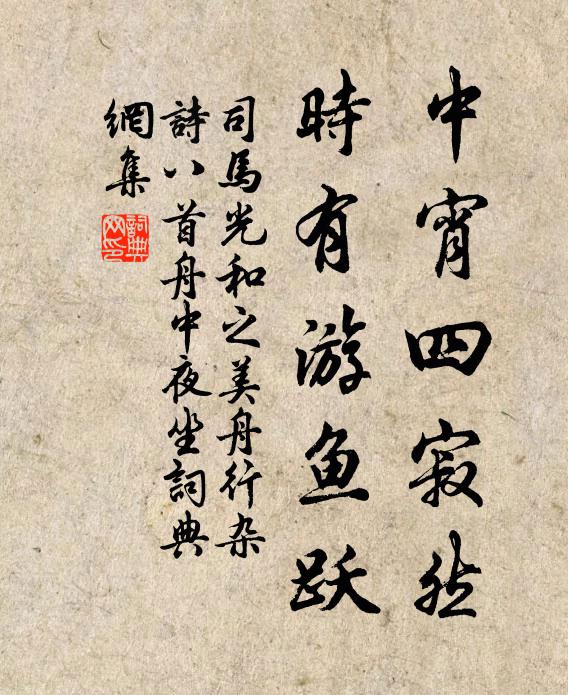 中宵四寂然
時有游鱼跃
司馬光和之美舟行杂
詩八首舟中夜坐詞典
網集
詞典
网印